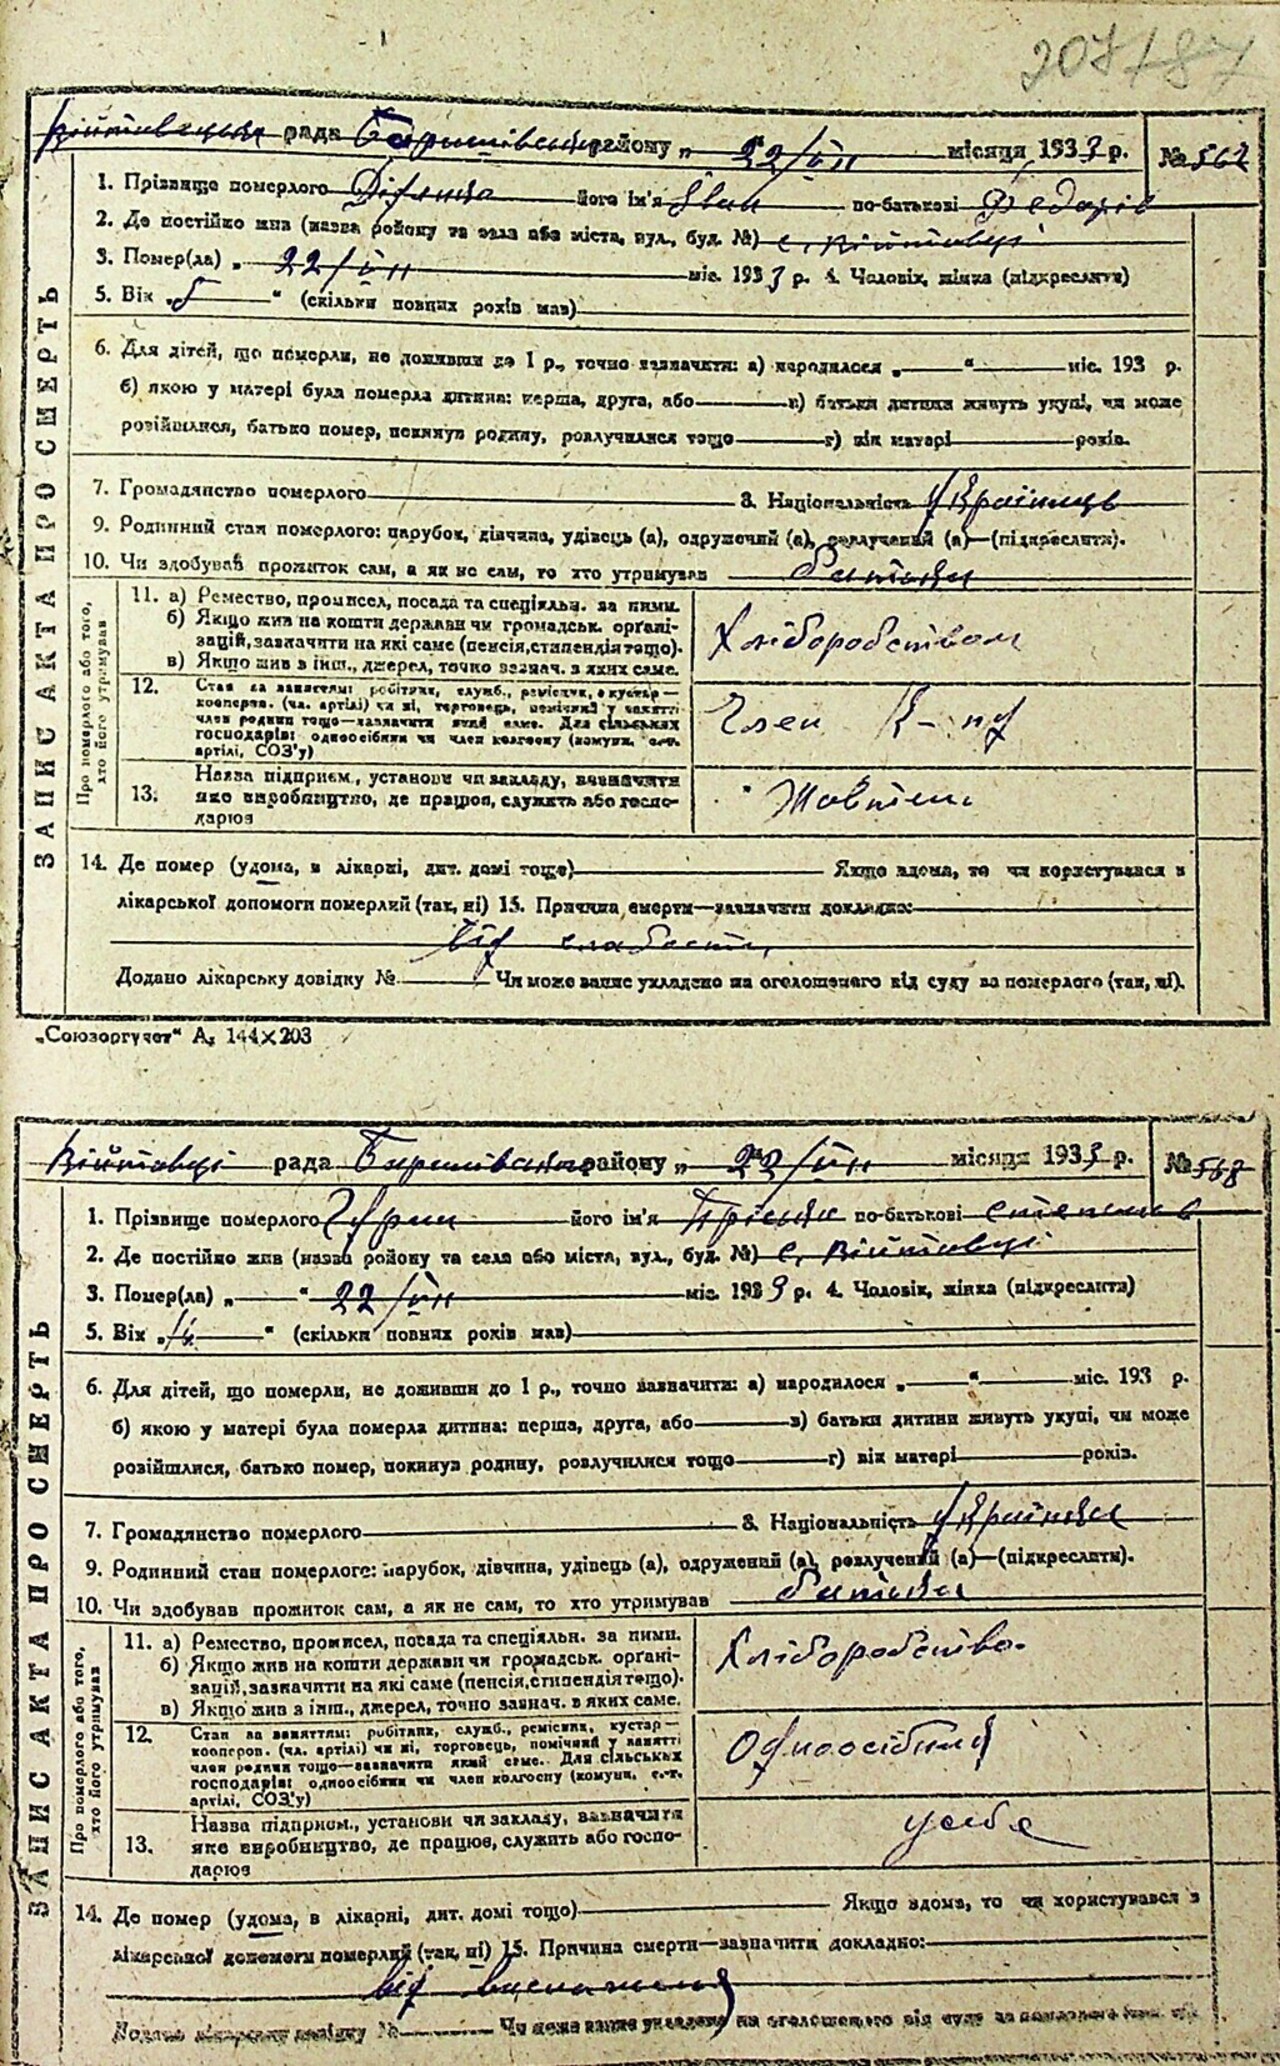 207/87
Війтовецька рада Баришівського району „ 22/VII місяця 1933 р. № 567
1. Прізвище померлого його ім'я Іван по-батькові Федорів
2. Де постійно жив (назва району та села або міста, вул., буд. №) с. Війтовці
3. Помер(ла) „ 22/VII міс. 1933 р. 4. Чоловік, жінка (підкреслити)
5. Вік „5 “ (скільки повних років мав)
ЗАПИС АКТА ПРО СМЕРТЬ
6. Для дітей, що померли, не доживши до 1 р., точно зазначити: а) народилося „ “ міс. 193 р.
б) якою у матері була померла дитина: перша, друга, або в) батьки дитини живуть укупі, чи може
розійшлися, батько помер, покинув родину, розлучилися тощо г) вік матері років.
7. Громадянство померлого 8. Національність Українець
9. Родинний стан померлого: парубок, дівчина, удівець (а), одружений (а), розлучений (а)—(підкреслити).
10. Чи здобував прожиток сам, а як не сам, то хто утримував батьки
Про померлого або того, хто його утримував
11. а) Ремество, промисел, посада та спеціяльн. за ними.
б) Якщо жив на кошти держави чи громадськ. органі-
зацій, зазначити на які саме (пенсія, стипендія тощо).
в) Якщо жив з інш., джерел, точно зазнач. з яких саме.
Хліборобством
12. Стан за заняттям: робітник, служб., ремісник, кустар—
кооперов. (чл. артілі) чи ні, торговець, помічний у занятті
член родини тощо—зазначити який саме. Для сільських
господарів: одноосібник чи член колгоспу (комуни, с.-г.
артілі, СОЗ'у)
Член К-пу
13. Назва підприєм., установи чи закладу, зазначити
яке виробництво, де працює, служить або госпо-
дарює
Жовтень
14. Де помер (удома, в лікарні, дит. домі тощо) Якщо вдома, то чи користувався з
лікарської допомоги померлий (так, ні) 15. Причина смерти—зазначити докладно:
Від слабости
Додано лікарську довідку № Чи може запис укладено на оголошеного від суду за померлого (так, ні).
„Союзоргучет“ А, 144×203
Війтовці рада Баришівського району „ 22/VII місяця 1933 р. № 568
1. Прізвище померлого його ім'я Пріська по-батькові Степанів
2. Де постійно жив (назва району та села або міста, вул., буд. №) с. Війтовці
3. Помер(ла) „ “ 22/VII міс. 1933 р. 4. Чоловік, жінка (підкреслити)
5. Вік „ “ (скільки повних років мав)
ЗАПИС АКТА ПРО СМЕРТЬ
6. Для дітей, що померли, не доживши до 1 р., точно зазначити: а) народилося „ “ міс. 193 р.
б) якою у матері була померла дитина: перша, друга, або в) батьки дитини живуть укупі, чи може
розійшлися, батько помер, покинув родину, розлучилися тощо г) вік матері років.
7. Громадянство померлого 8. Національність Українка
9. Родинний стан померлого: парубок, дівчина, удівець (а), одружений (а), розлучений (а)—(підкреслити).
10. Чи здобував прожиток сам, а як не сам, то хто утримував батьки
Про померлого або того, хто його утримував
11. а) Ремество, промисел, посада та спеціяльн. за ними.
б) Якщо жив на кошти держави чи громадськ. органі-
зацій, зазначити на які саме (пенсія, стипендія тощо).
в) Якщо жив з інш., джерел, точно зазнач. в яких саме.
Хліборобство.
12. Стан за заняттям: робітник, служб., ремісник, кустар—
кооперов. (чл. артілі) чи ні, торговець, помічний у занятті
член родини тощо—зазначити який саме. Для сільських
господарів: одноосібник чи член колгоспу (комуни, с.-г.
артілі, СОЗ'у)
Одноосібник
13. Назва підприєм., установи чи закладу, зазначити
яке виробництво, де працює, служить або госпо-
дарює
усебе
14. Де помер (удома, в лікарні, дит. домі тощо) Якщо вдома, то чи користувався з
лікарської допомоги померлий (так, ні) 15. Причина смерти—зазначити докладно:
від виснаження
Додано лікарську довідку № Чи може запис укладено на оголошеного від суду за померлого (так, ні).